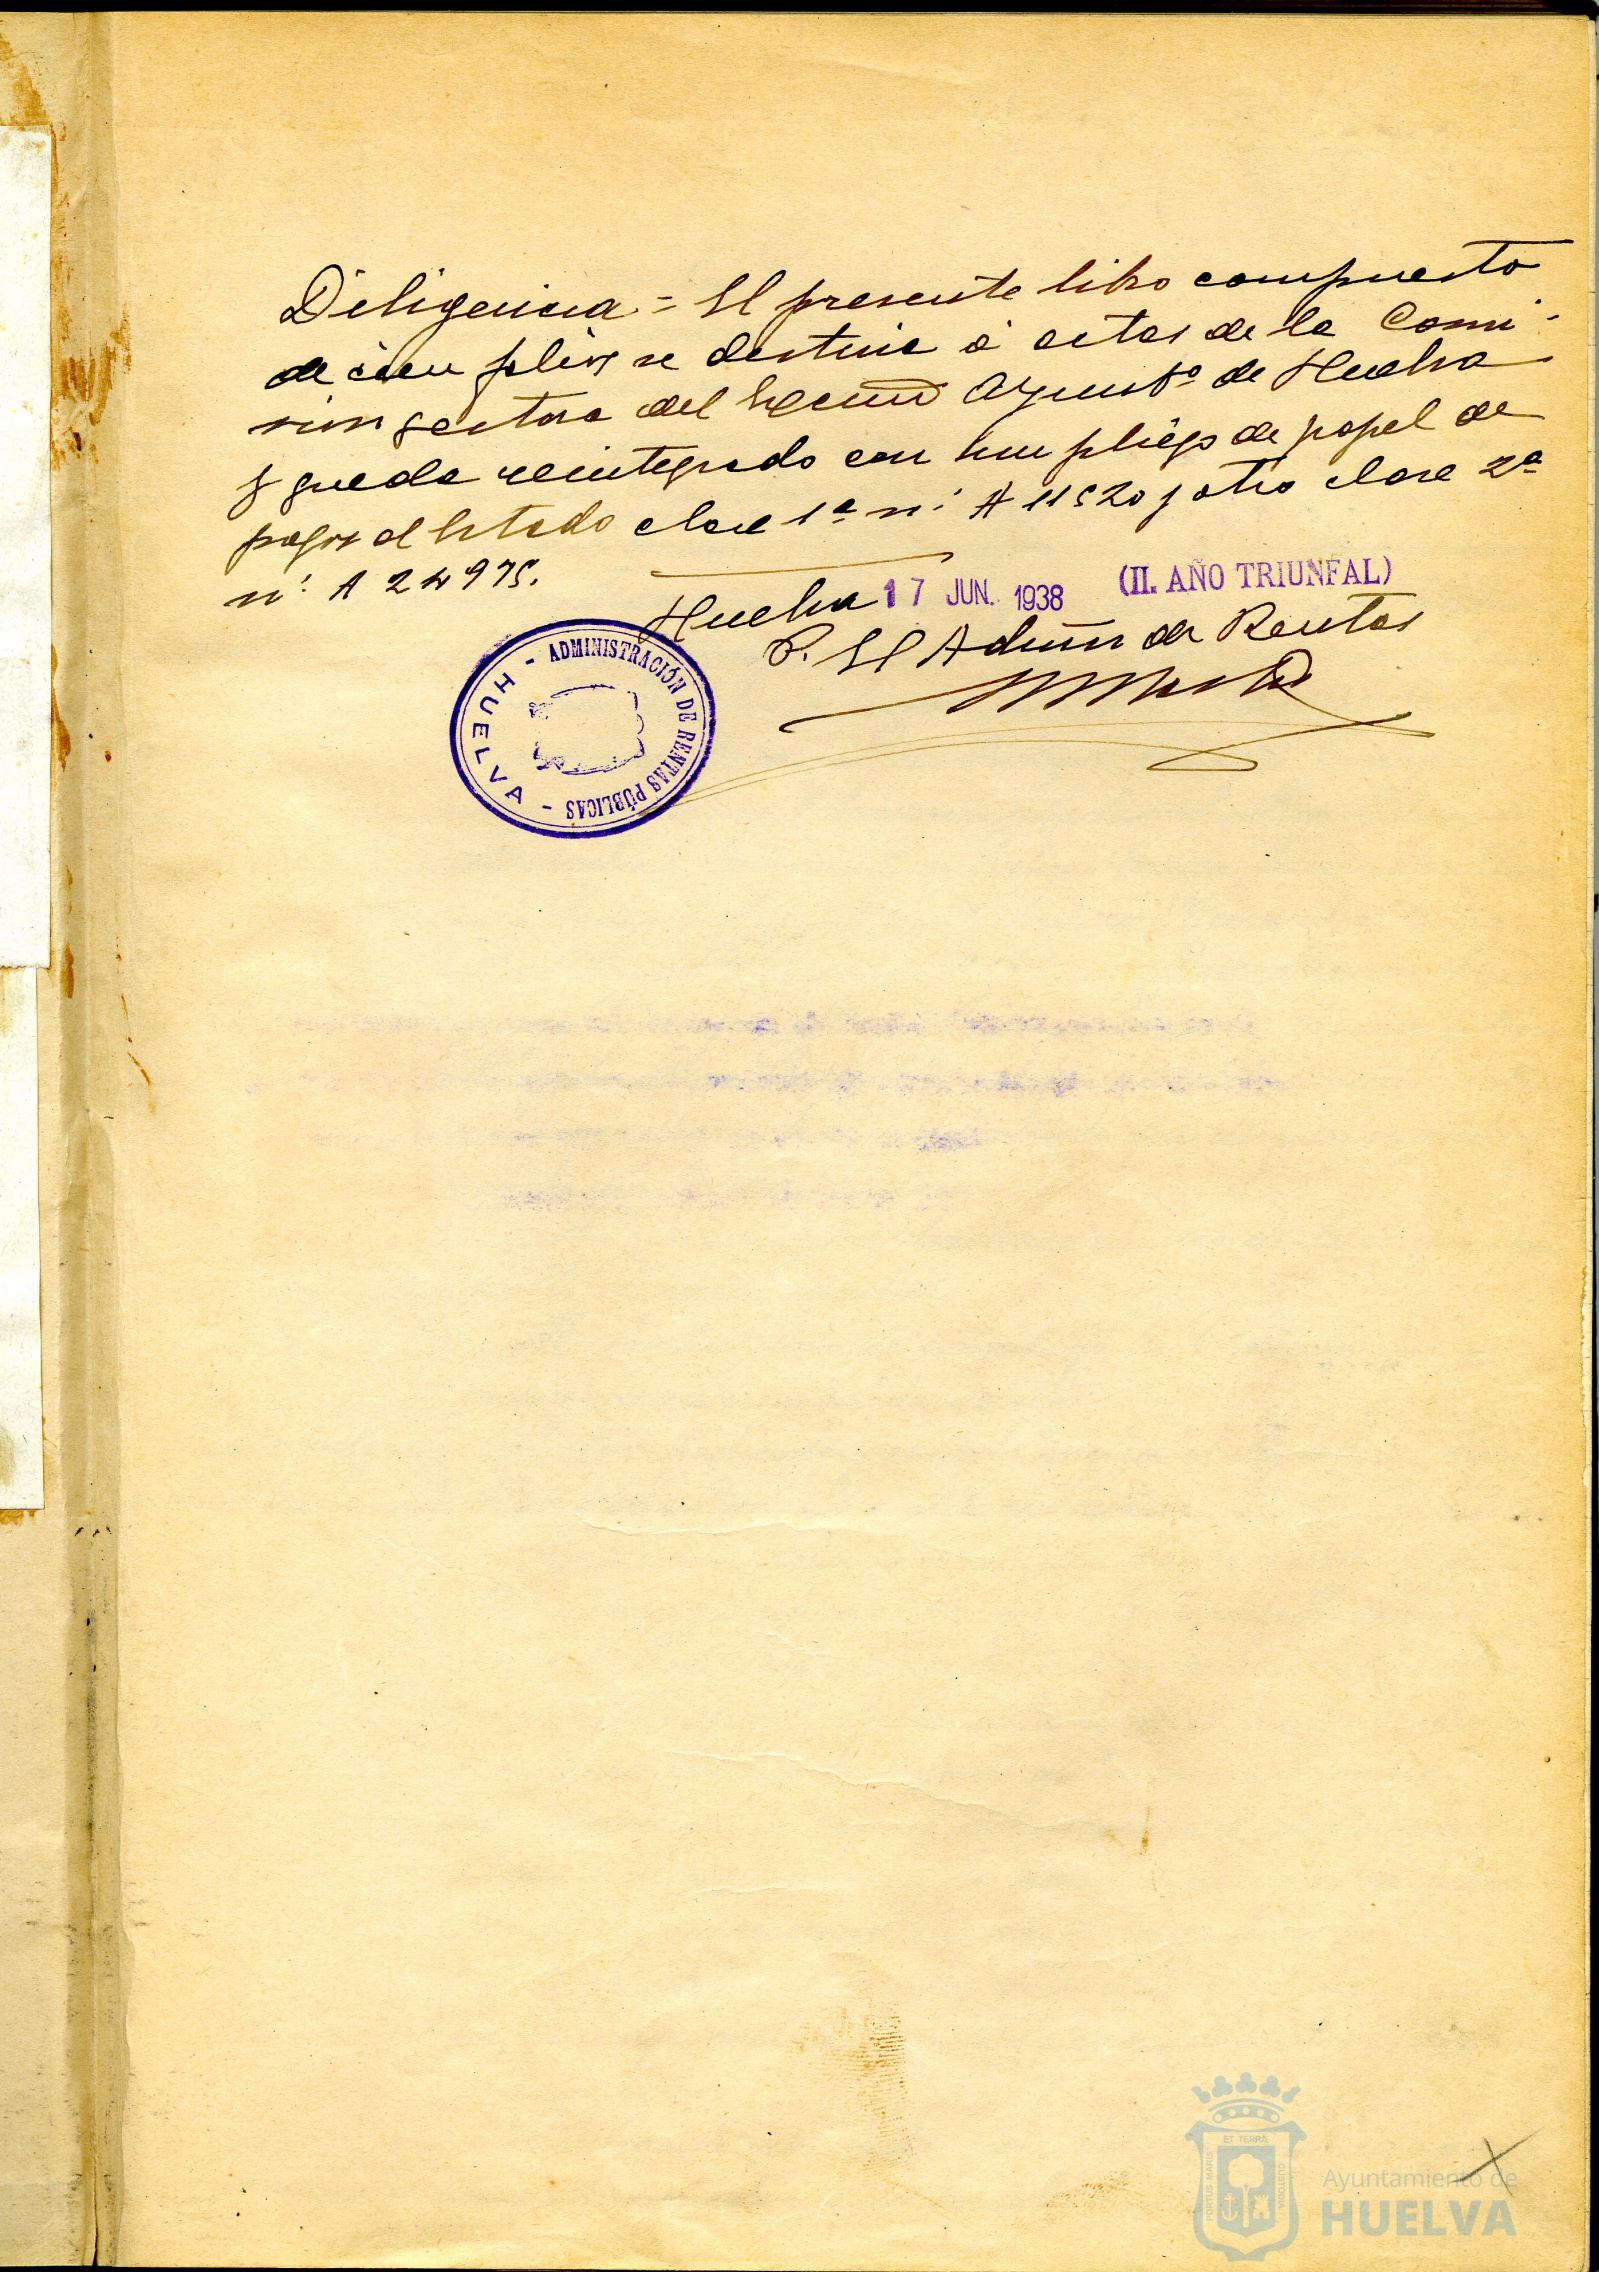 Diligencia = El presente libro compuesto
de cien pliegos se destina á actas de la Comi-
sion gestora del Excmo Ayuntº de Huelva
y queda reintegrado con un pliego de papel de
pagos al Estado clase 1ª nº A 11520 y otro clase 2ª
nº A 24975.
Huelva 17 JUN. 1938 (II. AÑO TRIUNFAL)
P. El Admon de Rentas
- ADMINISTRACIÓN DE RENTAS PÚBLICAS -
HUELVA
PORTUS MARIS ET TERRÆ CUSTODIA
Ayuntamiento de
HUELVA